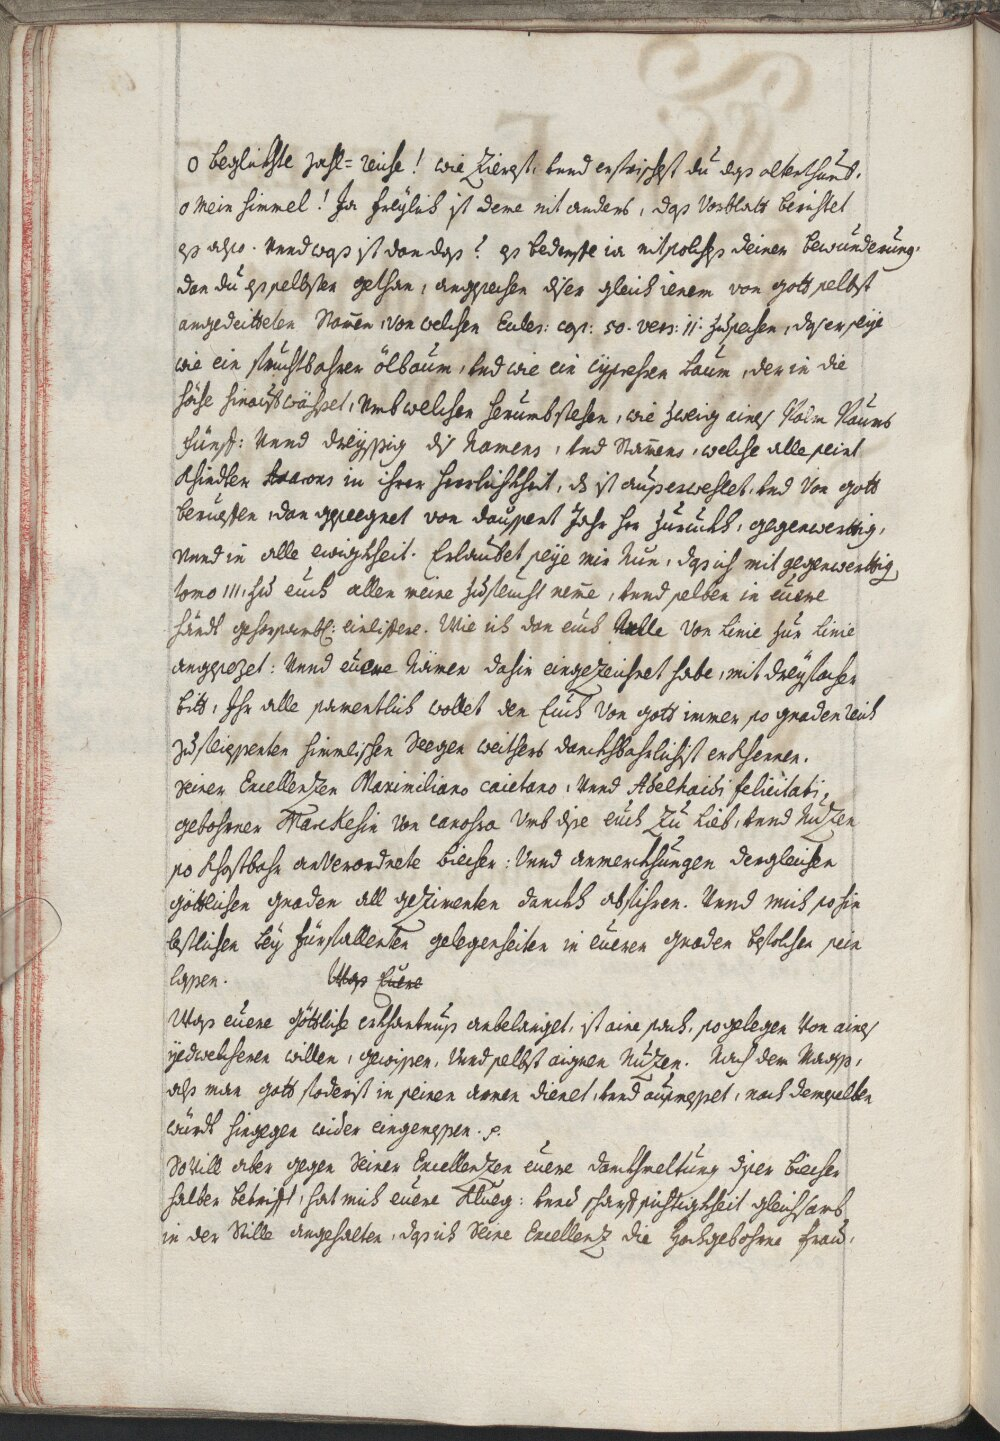 o beglükhte zahl=reiche! wie Zierest, vnnd erfrischest du das alterthumb.
o mein himmel! Ja freÿlich ist deme nit anders, das Vorblatt berichtet
es also. Vnnd was ist dan das? es bedarffe ia nit solches deiner bewunderung.
dan du es selbsten gethan, angesechen diser gleich ienem von gott selbst
angedeitteten Stam̄en, von welchen Eccles: cap: 50. vers: 11. zusechen, das er seÿe
wie ein fruchtbahrer ölbaum, vnd wie ein cÿpressen baum, der in die
höhe hinauf wachset, Vmb welchen herumbstehen, wie zweig eines Palm Baums
fünf: Vnnd dreÿssig dis Namens, vnd Stam̄ens, welche alle seint
Khinder Aarons in ihrer Herrlichkheit, ds ist auserwehlet, vnd Von gott
berueffen, dan gesegnet von dausent Jahr her zurukh, gegenwerttig,
Vnnd in alle ewigkheit. Erlaubet seÿe mir Nun, das ich mit gegenwerttig
tomo III, zu euch allen meine zuflucht neme, vnnd selben in euere
händt gehorsambst: einliffere. Wie ich dan euch Alle Von Linie zur Linie
angesezet: Vnnd euere Nämen dahin eingezeichnet habe, mit dreÿfacher
bitt, Ihr alle samentlich wollet den Euch Von gott immer so gnadenreich
zufleissenten himmlischen Seegen weithers danckhbahrlichist erkhennen.
Seiner Excellenzen Maximiliano caietano, Vnnd Adelhaidi felicitati,
gebohrner Markesin von canossa Vmb dise euch Zu lieb, vnnd Nutzen
so khostbahr anVerordnete biecher: Vnnd anmerckhungen dergleichen
göttlichen gnaden all gezimenten danckh abstihren. Vnnd mich so hin
lestlichen beÿ fürfallenten gelegenheiten in eueren gnaden befolchen sein
lassen. Was Euere
Was euere Göttliche erkhantnus anbelanget, ist aine sach, so gelegen Von aines
ÿedwelcheren willen, gewissen, Vnnd selbst aignen Nutzen. Nach dem Maass,
als man gott foderist in seinen armen dienet, vnnd ausmesset, nach demselben
würdt hingegen wider eingemessen. p.
SoVill aber gegen Seiner Excellenzen euere danckhmeltung diser biecher
halber betrifft, hat mich euere Klueg: vnnd scharfsichtigkheit gleichsamb
in der Stille angehalten, das ich Seine Excellenz die Hochgebohrne frau,